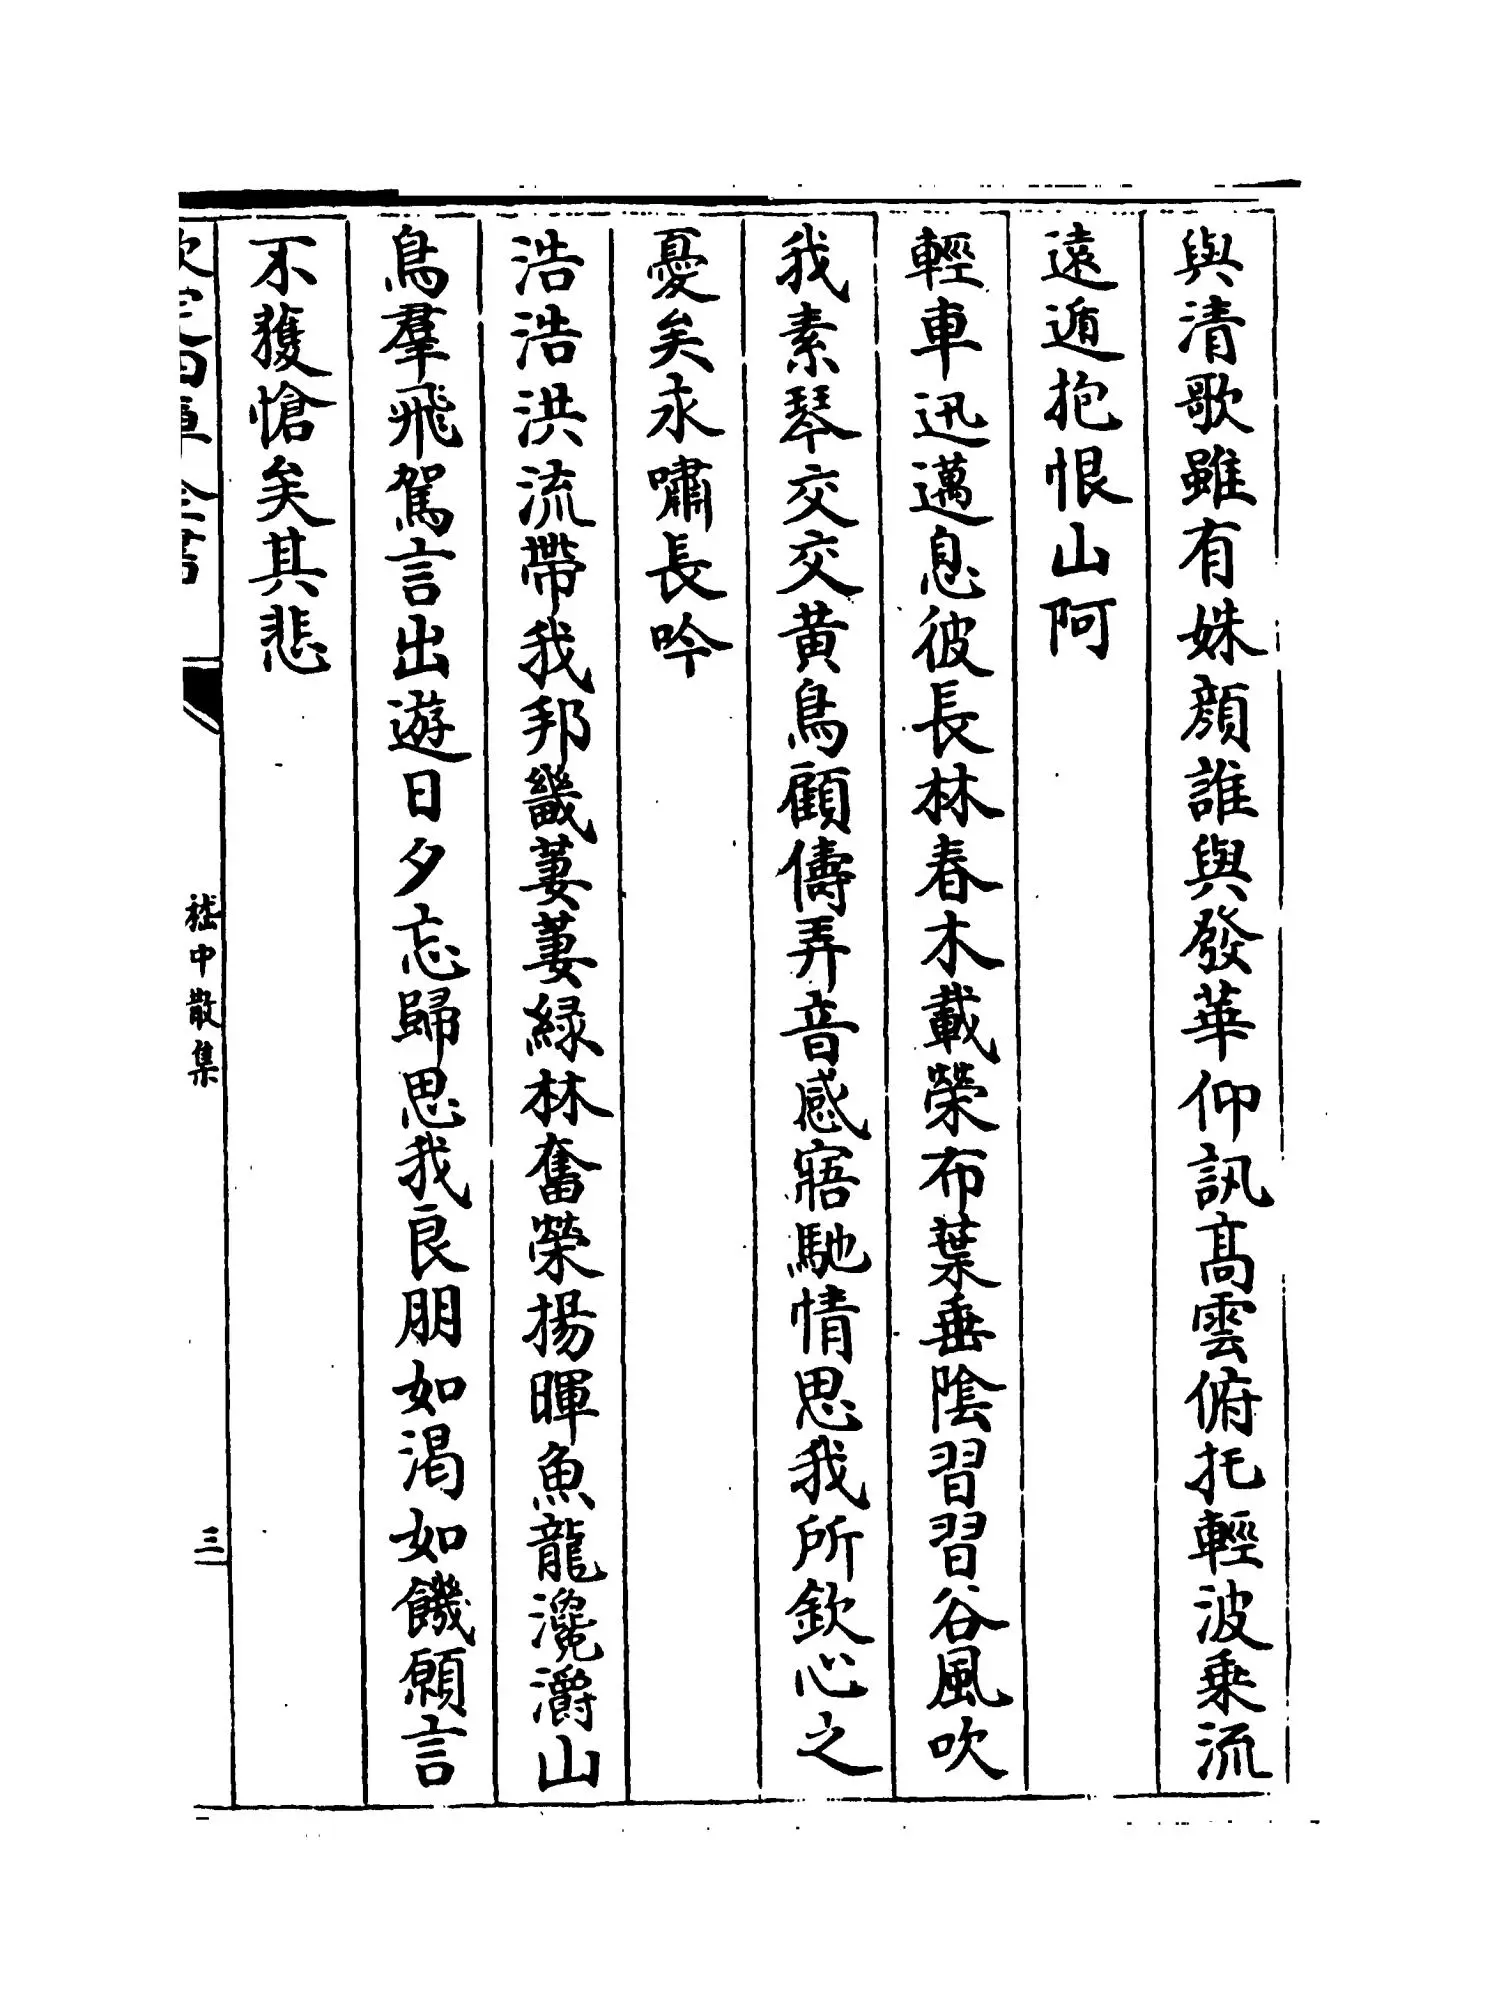 與清歌雖有姝顔誰與發華仰訊髙雲俯托輕波乗流
遠遁抱恨山阿
輕車迅邁息彼長林春木載榮布葉垂陰習習谷風吹
我素琴交交黄鳥顧儔弄音感寤馳情思我所欽心之
憂矣永嘯長吟
浩浩洪流帶我邦畿萋萋緑林奮榮揚暉魚龍瀺灂山
鳥羣飛駕言出遊日夕忘歸思我良朋如渴如饑願言
不獲愴矣其悲
欽定四庫全書
嵇中散集
三